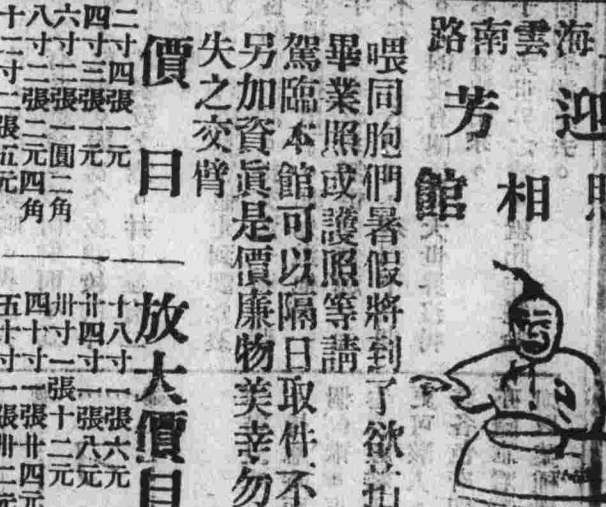 海雲南路
迎芳
照相館
喂同胞們暑假將到了欲拍
畢業照或護照等請
駕臨本館可以隔日取件不
另加資眞是價廉物美幸勿
失之交臂
價目
二寸四張一元
四寸三張一元
六寸二張一圓二角
八寸二張二元四角
十二寸二張五元
放大價目
十八寸一張六元
廿四寸一張八元
卅寸一張十二元
四十寸一張廿四元
五十寸一張卅二元